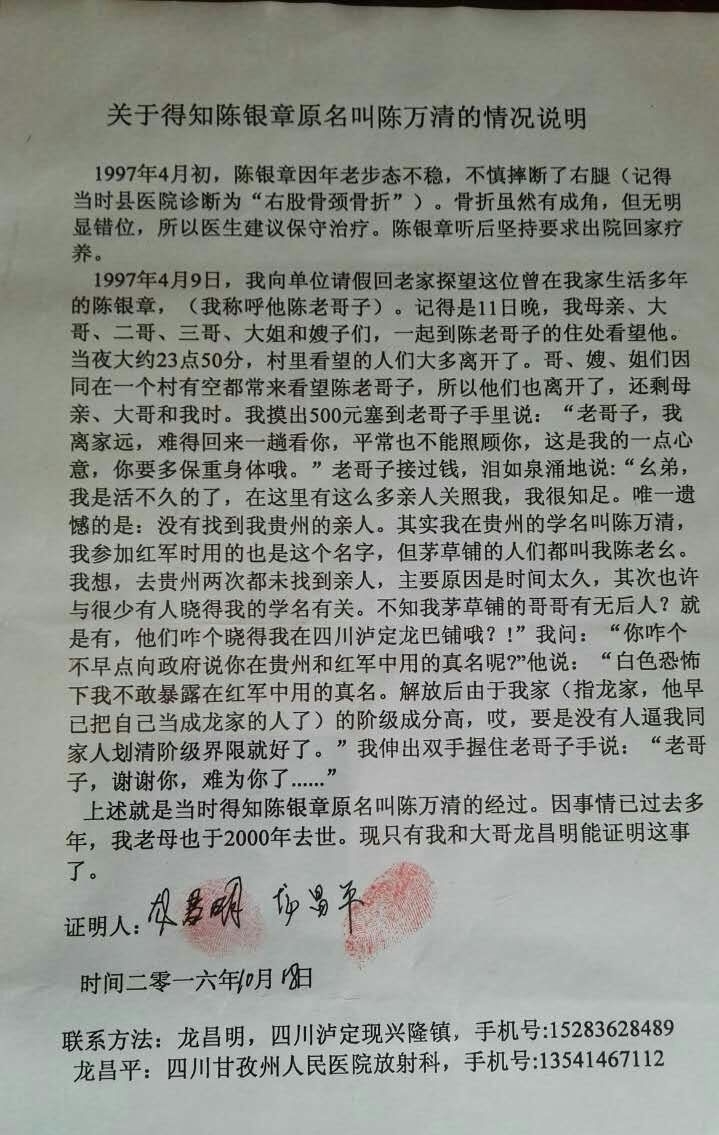 关于得知陈银章原名叫陈万清的情况说明
1997年4月初，陈银章因年老步态不稳，不慎摔断了右腿（记得
当时县医院诊断为“右股骨颈骨折”）。骨折虽然有成角，但无明
显错位，所以医生建议保守治疗。陈银章听后坚持要求出院回家疗
养。
1997年4月9日，我向单位请假回老家探望这位曾在我家生活多年
的陈银章，（我称呼他陈老哥子）。记得是11日晚，我母亲、大
哥、二哥、三哥、大姐和嫂子们，一起到陈老哥子的住处看望他。
当夜大约23点50分，村里看望的人们大多离开了。哥、嫂、姐们因
同在一个村有空都常来看望陈老哥子，所以他们也离开了，还剩母
亲、大哥和我时。我摸出500元塞到老哥子手里说：“老哥子，我
离家远，难得回来一趟看你，平常也不能照顾你，这是我的一点心
意，你要多保重身体哦。”老哥子接过钱，泪如泉涌地说:“幺弟，
我是活不久的了，在这里有这么多亲人关照我，我很知足。唯一遗
憾的是：没有找到我贵州的亲人。其实我在贵州的学名叫陈万清，
我参加红军时用的也是这个名字，但茅草铺的人们都叫我陈老幺。
我想，去贵州两次都未找到亲人，主要原因是时间太久，其次也许
与很少有人晓得我的学名有关。不知我茅草铺的哥哥有无后人？就
是有，他们咋个晓得我在四川泸定龙巴铺哦？!”我问：“你咋个
不早点向政府说你在贵州和红军中用的真名呢?”他说：“白色恐怖
下我不敢暴露在红军中用的真名。解放后由于我家（指龙家，他早
已把自己当成龙家的人了）的阶级成分高，哎，要是没有人逼我同
家人划清阶级界限就好了。”我伸出双手握住老哥子手说：“老哥
子，谢谢你，难为你了......”
上述就是当时得知陈银章原名叫陈万清的经过。因事情已过去多
年，我老母也于2000年去世。现只有我和大哥龙昌明能证明这事
了。
证明人：龙昌明 龙昌平
时间二零一六年10月18日
联系方法：龙昌明，四川泸定现兴隆镇，手机号:15283628489
龙昌平：四川甘孜州人民医院放射科，手机号:13541467112